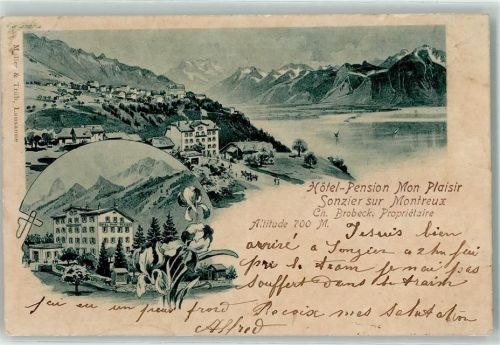 Müller & Trüb, Lausanne
Hôtel-Pension Mon Plaisir
Sonzier sur Montreux
Ch. Brobeck, Propriétaire
Altitude 700 M.
Je suis bien
arrivé a Sonzier a 2h j'ai
pri le tram je n'ai pas
souffert dans le train
j'ai eu un peux froid Recois mes salutation
Alfred